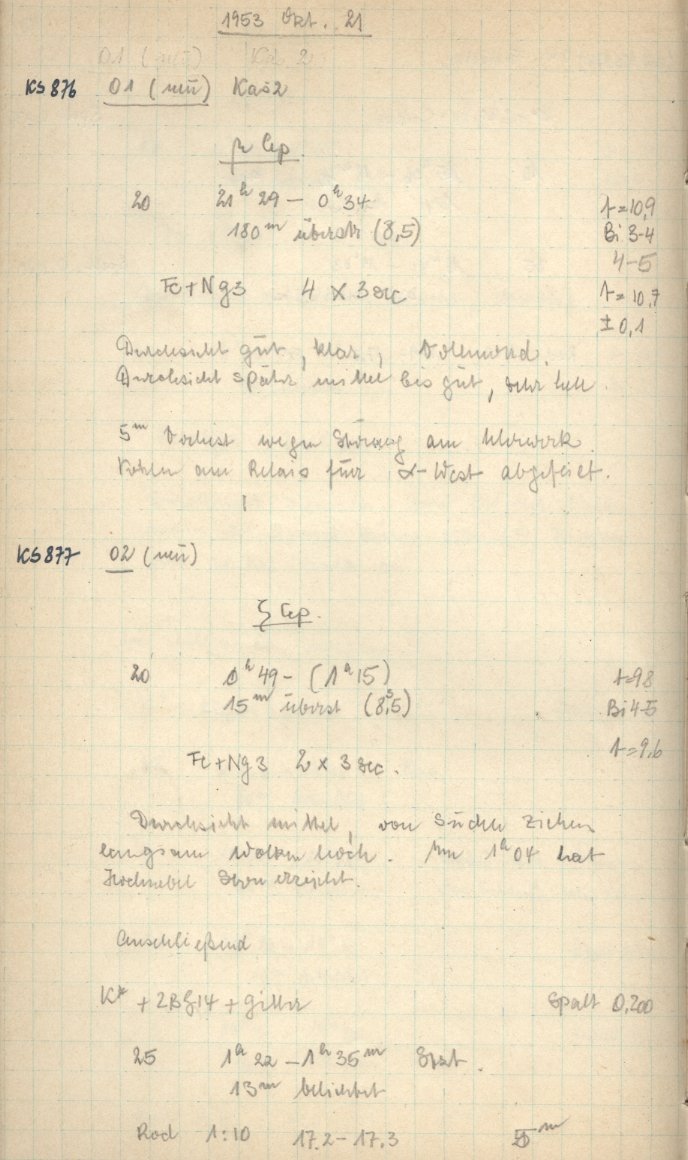 1953 Okt. 21
01 (neu) Kas 2
KS 876 01 (neu) Kas 2
μ Cep.
20 21ʰ 29 – 0ʰ 34 t = 10,9
180ᵐ überstr (8,5) Bi 3-4
4-5
Fe + Ng 3 4 × 3 sec t = 10,7
± 0,1
Durchsicht gut, klar, Vollmond.
Durchsicht später mittel bis gut, sehr hell.
5ᵐ Verlust wegen Störung am Uhrwerk.
Kohlen am Relais für α-West abgefeilt.
KS 877 02 (neu)
ξ Cep.
20 0ʰ 49 – (1ʰ 15) t = 9,8
15ᵐ überst (8,5) Bi 4-5
t = 9,6
Fe + Ng 3 2 × 3 sec.
Durchsicht mittel, von Süden ziehen
langsam Wolken hoch. Um 1ʰ 04 hat
Hochnebel Stern erreicht.
Anschließend
+ 2 BG 14 + Gitter Spalt 0,200
25 1ʰ 22 – 1ʰ 35ᵐ
13ᵐ belichtet
Rod 1:10 17.2 – 17.3 5ᵐ